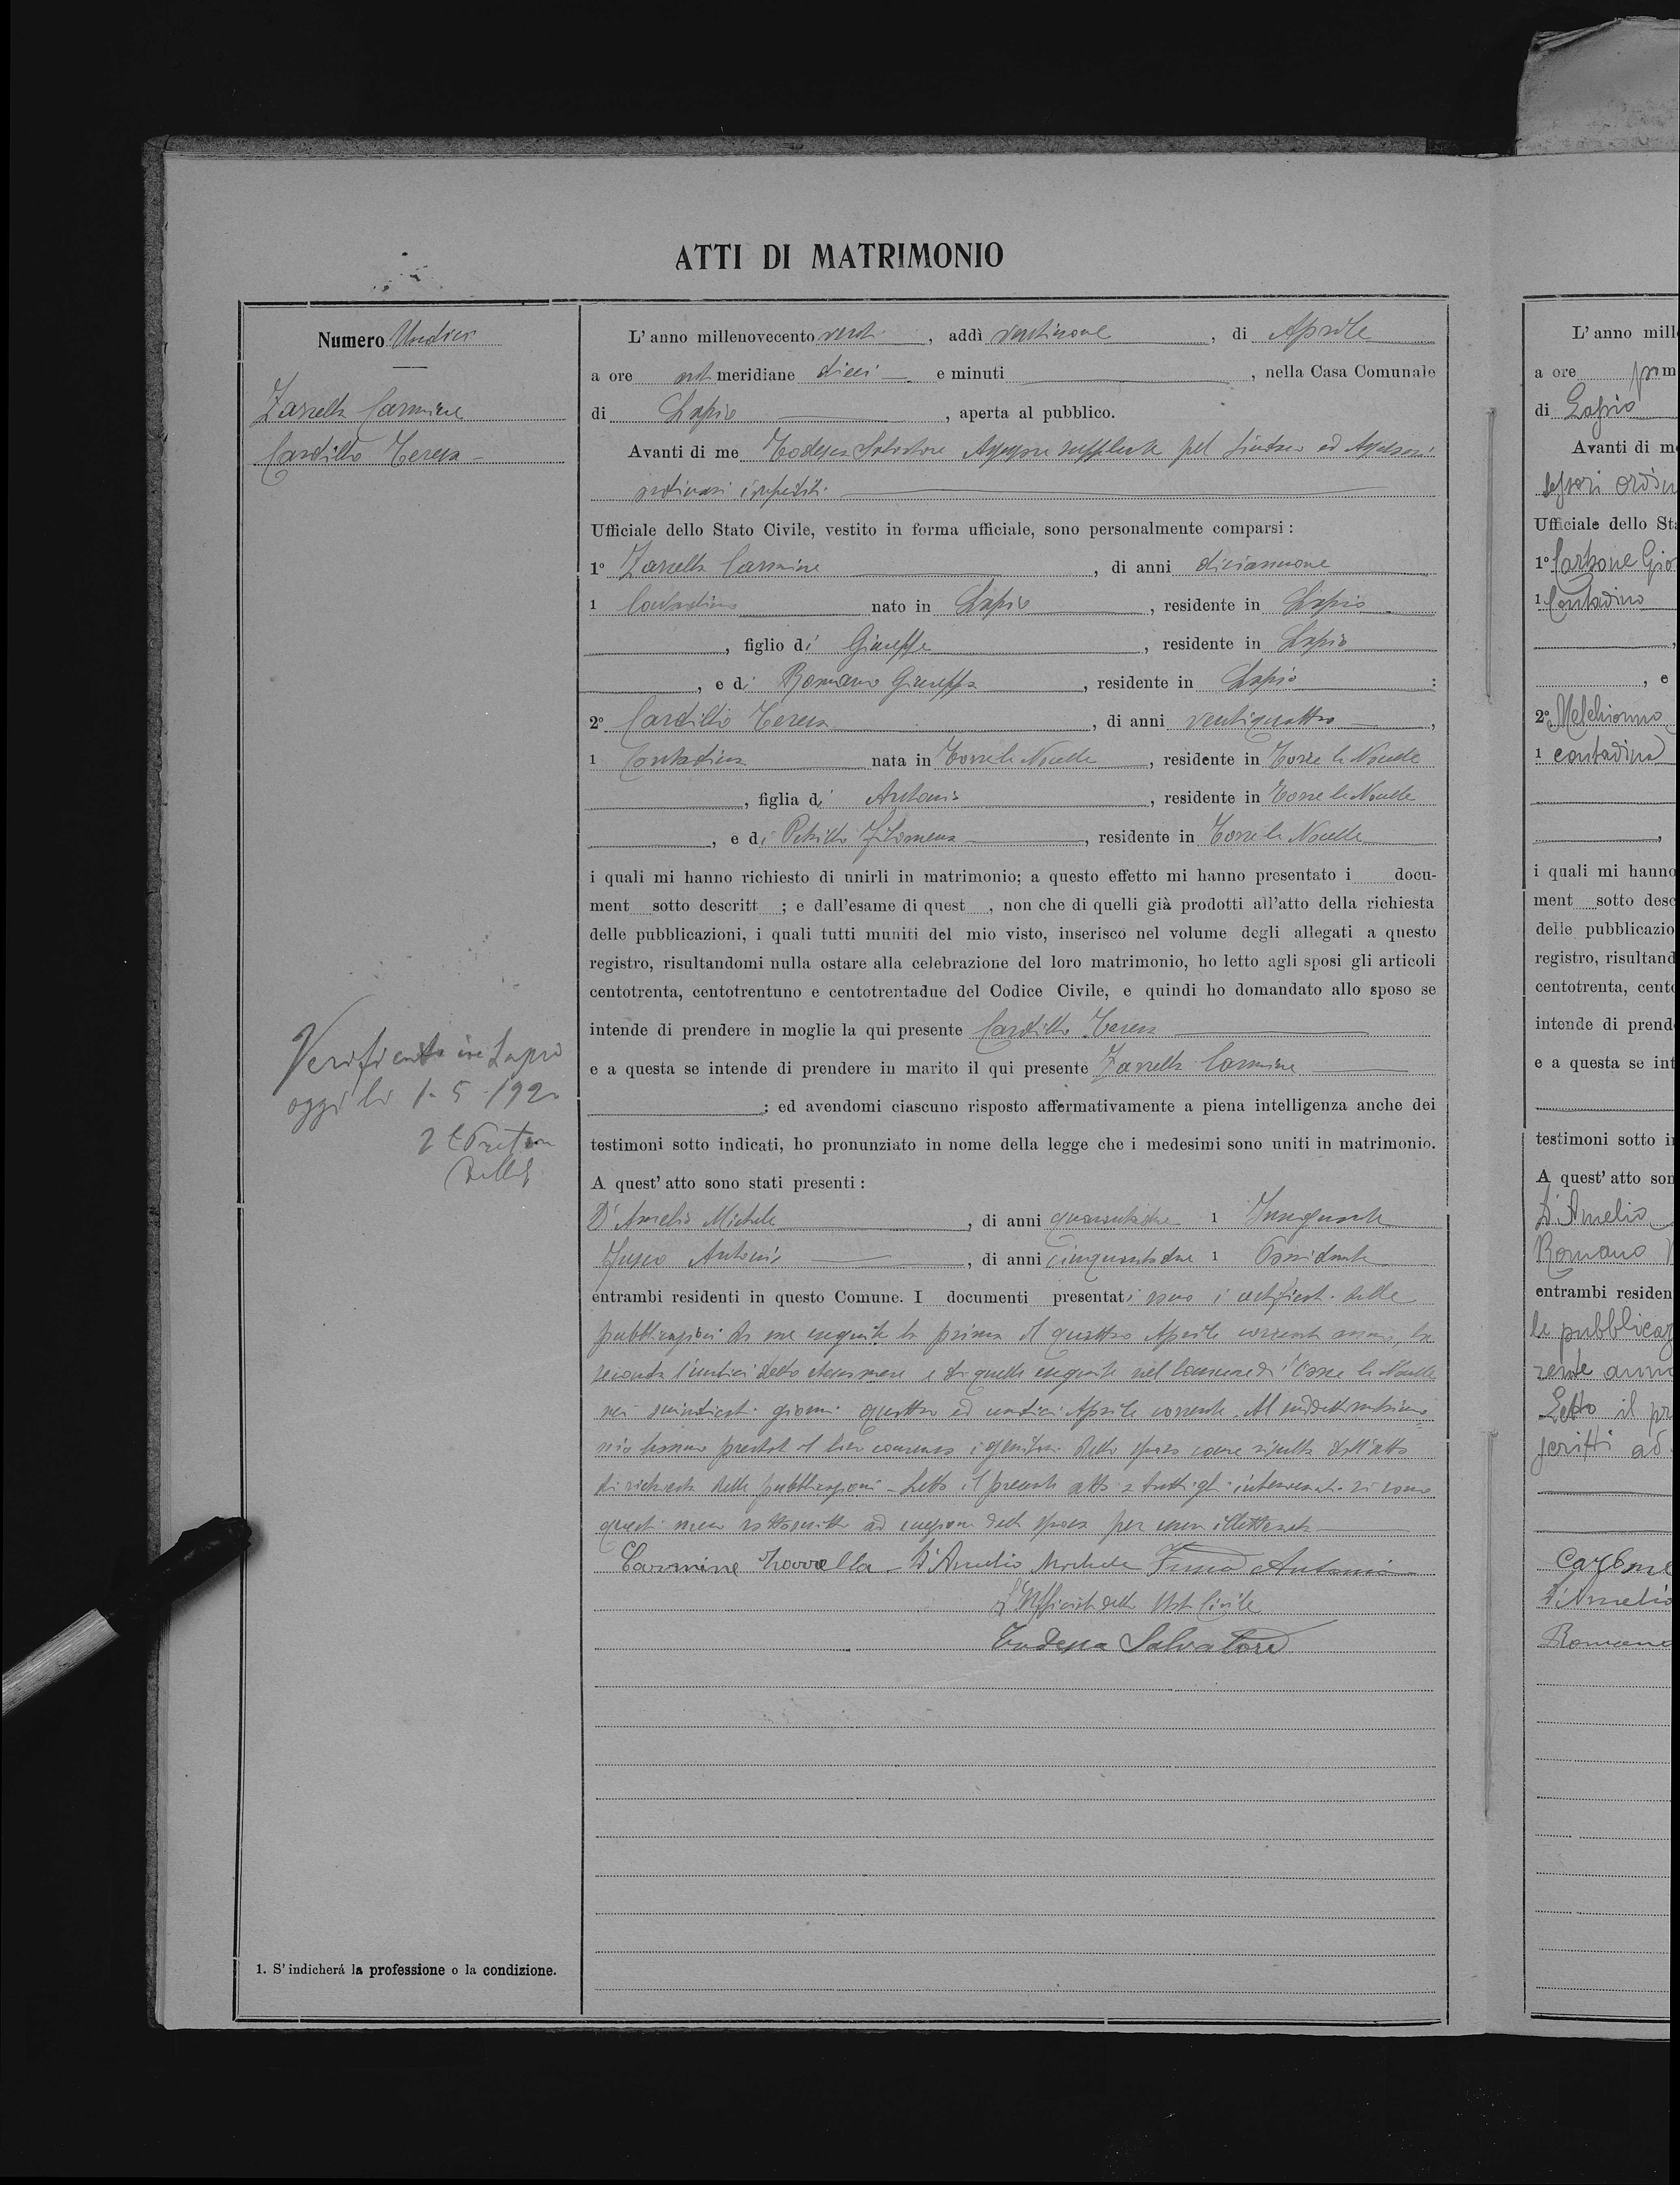 ATTI DI MATRIMONIO
Numero Undici
Zarrella Carmine
Cardillo Teresa
Verificato in Lapio
oggi li 1-5-1920
Il Pretore
1. S'indicherá la professione o la condizione.
L'anno millenovecento venti, addì ventinove, di Aprile
a ore antimeridiane dieci e minuti, nella Casa Comunale
di Lapio, aperta al pubblico.
Avanti di me Todesca Salvatore Assessore supplente pel Sindaco ed Assessori
ordinari impediti
Ufficiale dello Stato Civile, vestito in forma ufficiale, sono personalmente comparsi:
1º Zarrella Carmine, di anni diciannove
1 Contadino nato in Lapio, residente in Lapio
, figlio di Giuseppe, residente in Lapio
, e di Romano Giuseppa, residente in Lapio:
2º Cardillo Teresa, di anni ventiquattro,
1 Contadina nata in Torre le Nocelle, residente in Torre le Nocelle
, figlia di Antonio, residente in Torre le Nocelle
, e di Petrillo Filomena, residente in Torre le Nocelle
i quali mi hanno richiesto di unirli in matrimonio; a questo effetto mi hanno presentato i docu-
ment sotto descritt ; e dall'esame di quest , non che di quelli già prodotti all'atto della richiesta
delle pubblicazioni, i quali tutti muniti del mio visto, inserisco nel volume degli allegati a questo
registro, risultandomi nulla ostare alla celebrazione del loro matrimonio, ho letto agli sposi gli articoli
centotrenta, centotrentuno e centotrentadue del Codice Civile, e quindi ho domandato allo sposo se
intende di prendere in moglie la qui presente Cardillo Teresa
e a questa se intende di prendere in marito il qui presente Zarrella Carmine
; ed avendomi ciascuno risposto affermativamente a piena intelligenza anche dei
testimoni sotto indicati, ho pronunziato in nome della legge che i medesimi sono uniti in matrimonio.
A quest'atto sono stati presenti:
D'Amelio Michele, di anni quarantadue 1 Insegnante
Fusco Antonio, di anni cinquantadue 1 Possidente
entrambi residenti in questo Comune. I documenti presentati sono i certificati delle
pubblicazioni da me eseguite la prima il quattro Aprile corrente anno, la
seconda l'undici detto stesso mese e di quelle eseguite nel Comune di Torre le Nocelle
nei suindicati giorni quattro ed undici Aprile corrente. Al suddetto matrimo=
nio hanno prestato il loro consenso i genitori dello sposo come risulta dall'atto
di richiesta delle pubblicazioni - Letto il presente atto a tutti gli intervenuti si sono
questi meco sottoscritti ad eccezione della sposa per essere illetterata
Carmine Zarrella - D'Amelio Michele Fusco Antonio
L'Ufficiale dello Stato Civile
Todesca Salvatore
L'anno mill
a ore pom
di Lapio
Avanti di m
sessori ordin
Ufficiale dello Sta
1º Carbone Gio
1 Contadino
, e
2º Melchionno
1 contadina
i quali mi hanno
ment sotto desc
delle pubblicazio
registro, risultand
centotrenta, cento
intende di prend
e a questa se int
testimoni sotto i
A quest'atto son
D'Amelio
Romano
entrambi residen
le pubblicaz
rente anno
Letto il pr
scritti ad
Carbone
D'Amelio
Romano